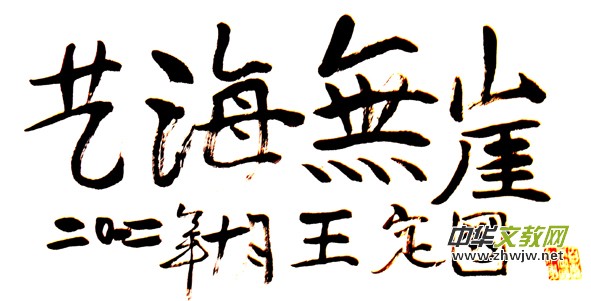 艺海無崖
二〇一二年十月王定國
中华文教网
www.zhwjw.net